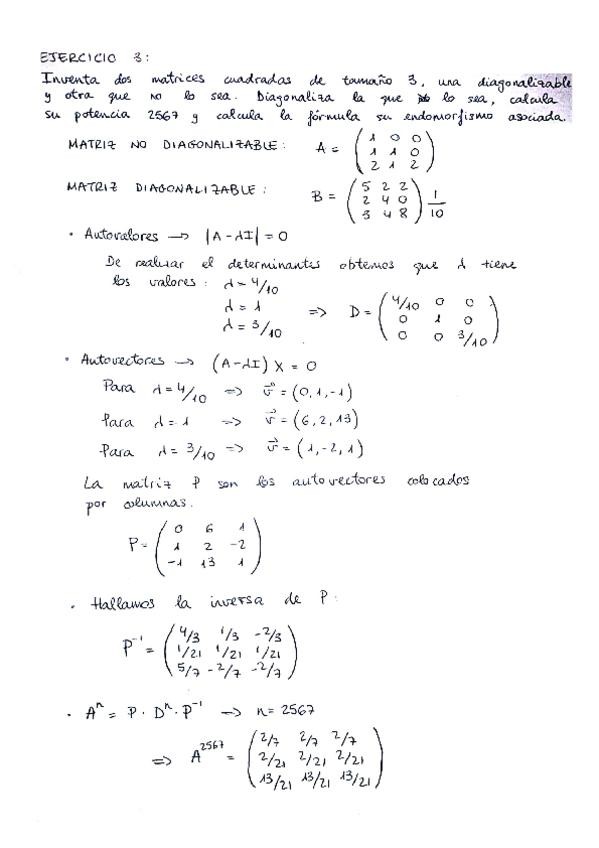 EJERCICIO 3:
Inventa dos matrices cuadradas de tamaño 3, una diagonalizable
y otra que no lo sea. Diagonaliza la que lo sea, calcula
su potencia 2567 y calcula la fórmula su endomorfismo asociada.
MATRIZ NO DIAGONALIZABLE: A = ( 1 0 0
1 1 0
2 1 2 )
MATRIZ DIAGONALIZABLE: B = ( 5 2 2
2 4 0
3 4 8 ) 1/10
• Autovalores → |A-λI| = 0
De realizar el determinantes obtemos que λ tiene
los valores: λ = 4/10
λ = 1
λ = 3/10
⇒ D = ( 4/10 0 0
0 1 0
0 0 3/10 )
• Autovectores → (A-λI) X = 0
Para λ = 4/10 ⇒ v⃗ = (0, 1, -1)
Para λ = 1 ⇒ v⃗ = (6, 2, 13)
Para λ = 3/10 ⇒ v⃗ = (1, -2, 1)
La matriz P son los autovectores colocados
por columnas.
P = ( 0 6 1
1 2 -2
-1 13 1 )
• Hallamos la inversa de P:
P⁻¹ = ( 4/3 1/3 -2/3
1/21 1/21 1/21
5/7 -2/7 -2/7 )
• Aⁿ = P · Dⁿ · P⁻¹ → n = 2567
⇒ A²⁵⁶⁷ = ( 2/7 2/7 2/7
2/21 2/21 2/21
13/21 13/21 13/21 )